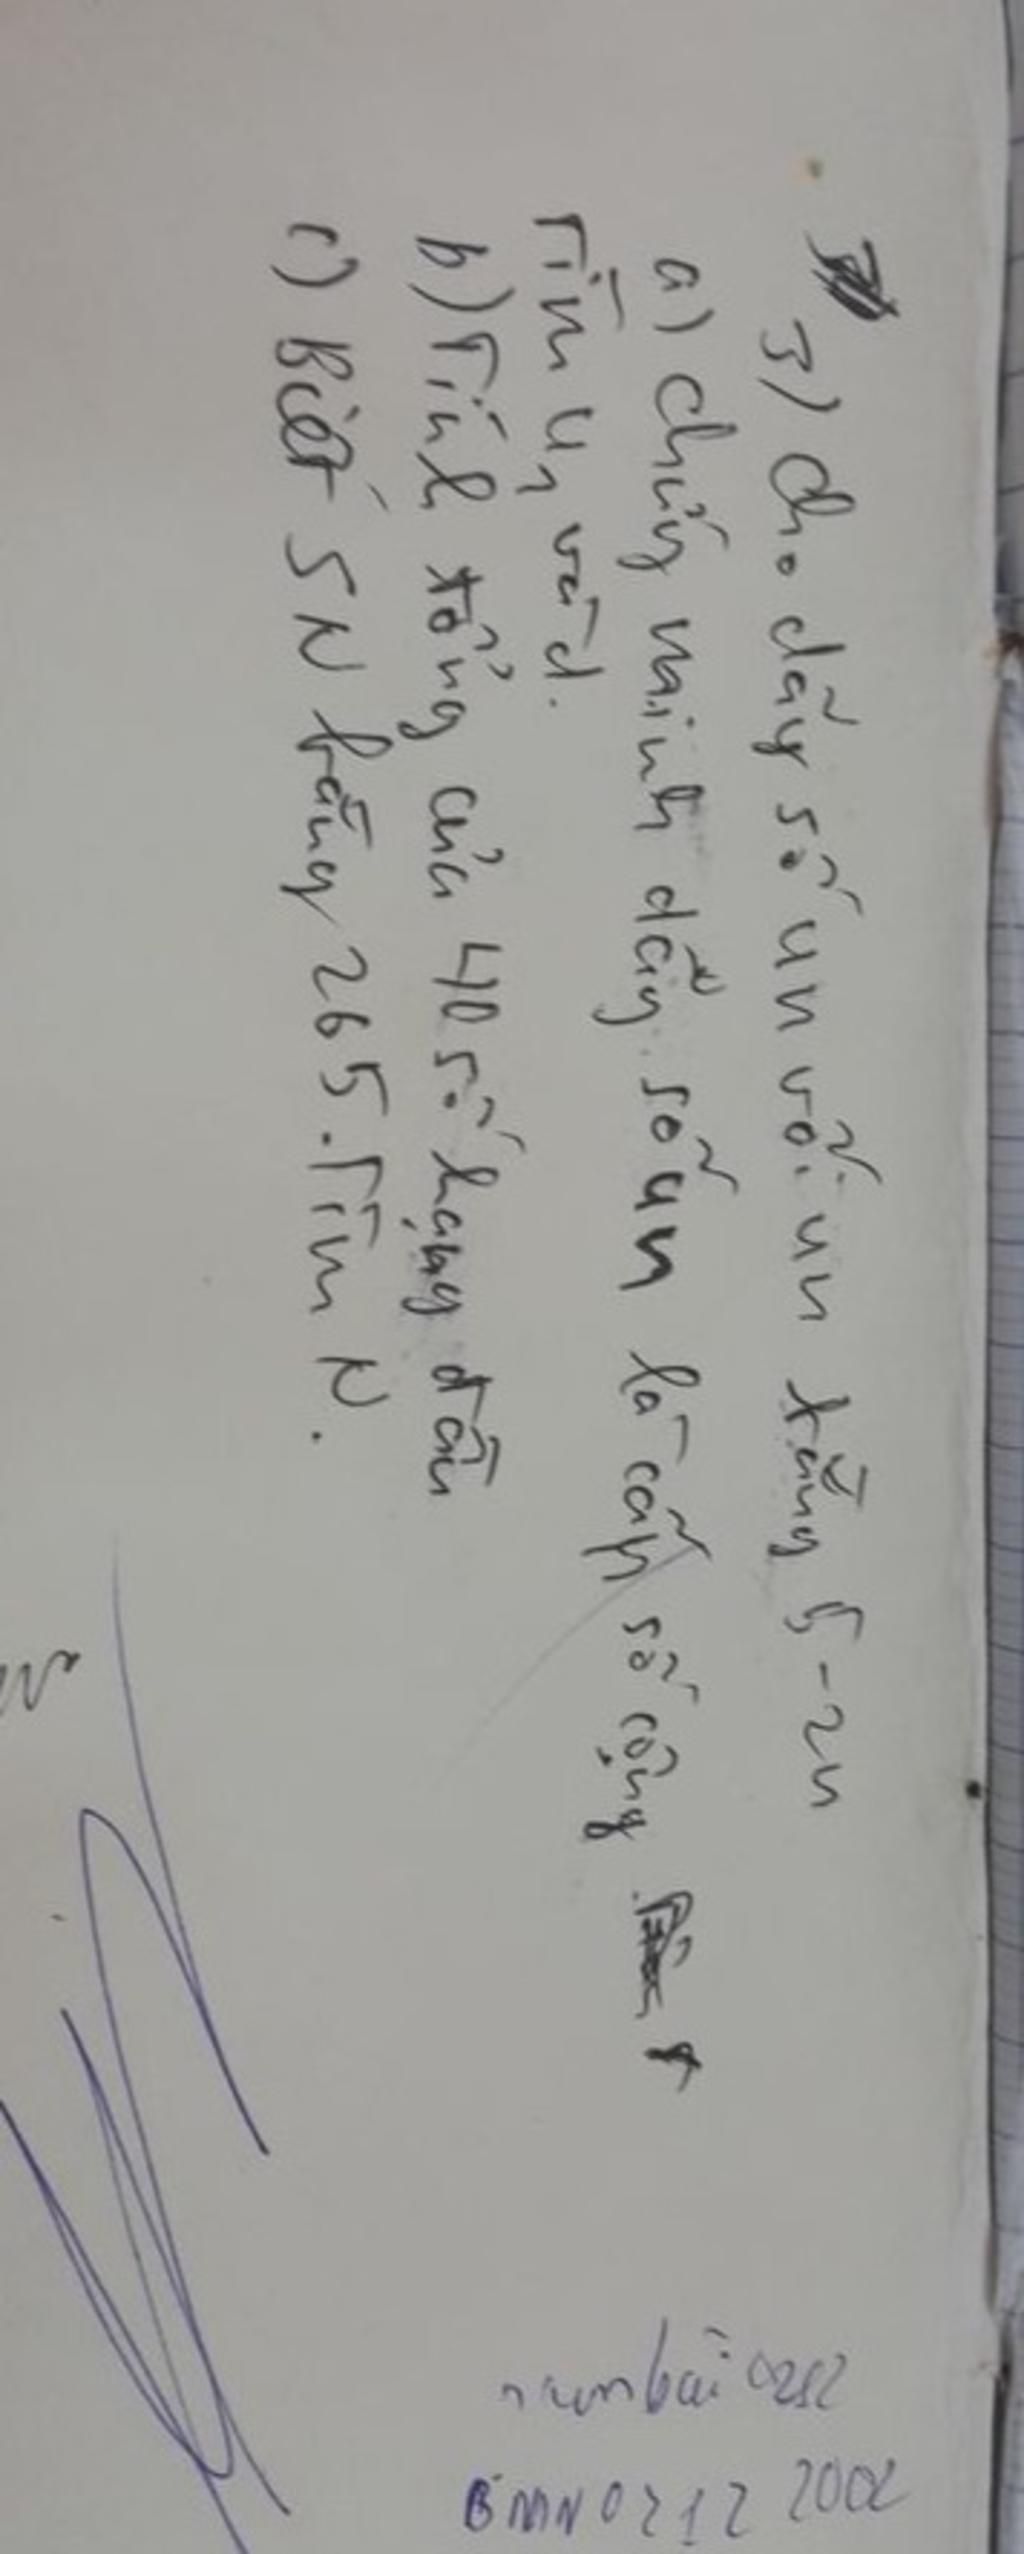 3) Cho dãy số un với un bằng 5-2n
a) Chứng minh dãy số un là cấp số cộng
Tìm u1 và d.
b) Tính tổng của 40 số hạng đầu
c) Biết SN bằng 265. Tìm N.
0212 2002